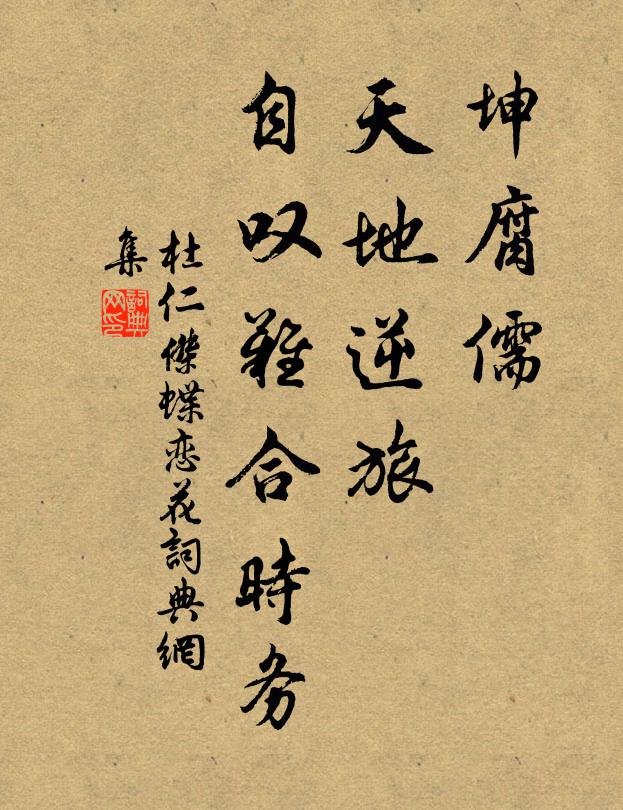 坤腐儒
天地逆旅
自叹难合時务
杜仁傑蝶恋花詞典網
集
詞典网印